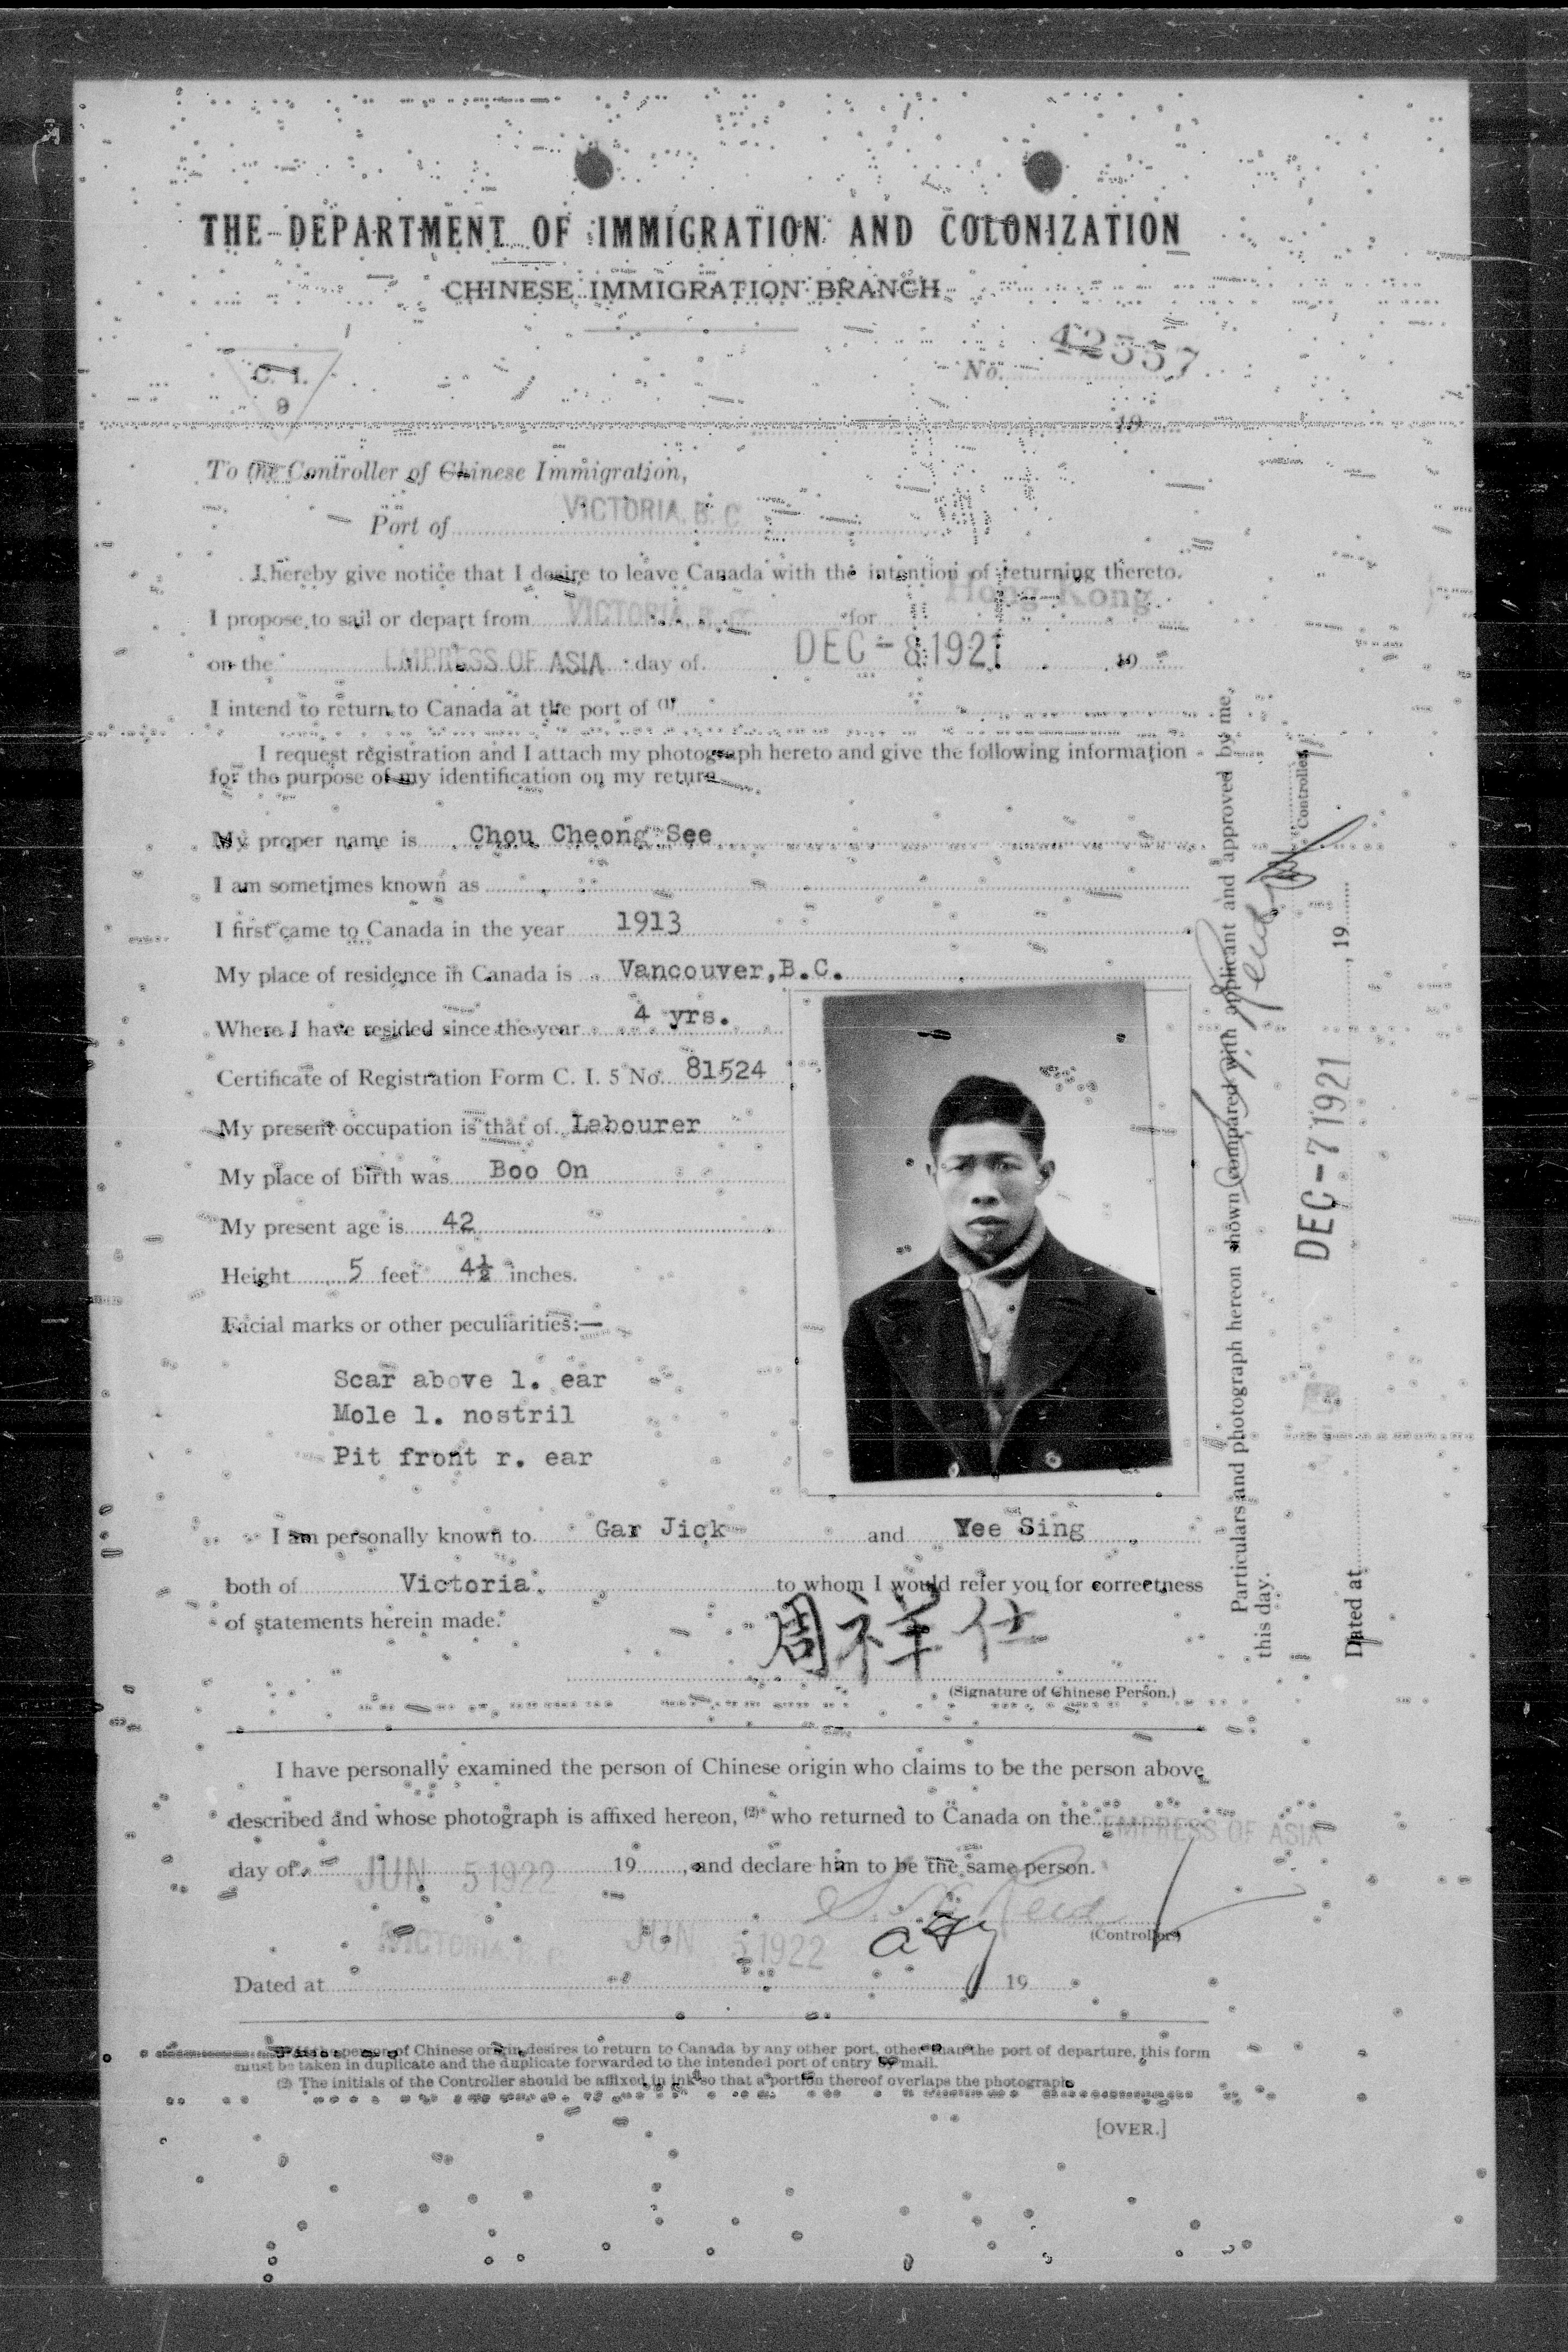 THE DEPARTMENT OF IMMIGRATION AND COLONIZATION
CHINESE IMMIGRATION BRANCH
C. I.
9
No. 42557
19
To the Controller of Chinese Immigration,
Port of VICTORIA, B. C.
I hereby give notice that I desire to leave Canada with the intention of returning thereto.
I propose to sail or depart from VICTORIA, B. C. for Hong Kong
on the EMPRESS OF ASIA day of DEC - 8 1921 19
I intend to return to Canada at the port of (1)
I request registration and I attach my photograph hereto and give the following information
for the purpose of my identification on my return.
My proper name is Chou Cheong See
I am sometimes known as
I first came to Canada in the year 1913
My place of residence in Canada is Vancouver,B.C.
Where I have resided since the year 4 yrs.
Certificate of Registration Form C. I. 5 No. 81524
My present occupation is that of Labourer
My place of birth was Boo On
My present age is 42
Height 5 feet 4½ inches.
Facial marks or other peculiarities:—
Scar above l. ear
Mole l. nostril
Pit front r. ear
I am personally known to Gar Jick and Yee Sing
both of Victoria. to whom I would refer you for correctness
of statements herein made.
周祥仕
(Signature of Chinese Person.)
I have personally examined the person of Chinese origin who claims to be the person above
described and whose photograph is affixed hereon, (2) who returned to Canada on the EMPRESS OF ASIA
day of JUN 5 1922 19 , and declare him to be the same person.
(Controller)
VICTORIA, B. C. JUN 5 1922
Dated at 19
If the person of Chinese origin desires to return to Canada by any other port, other than the port of departure, this form
must be taken in duplicate and the duplicate forwarded to the intended port of entry by mail.
(2) The initials of the Controller should be affixed in ink so that a portion thereof overlaps the photograph.
[OVER.]
Particulars and photograph hereon shown compared with applicant and approved by me,
this day.
Controller.
DEC - 7 1921
Dated at , 19